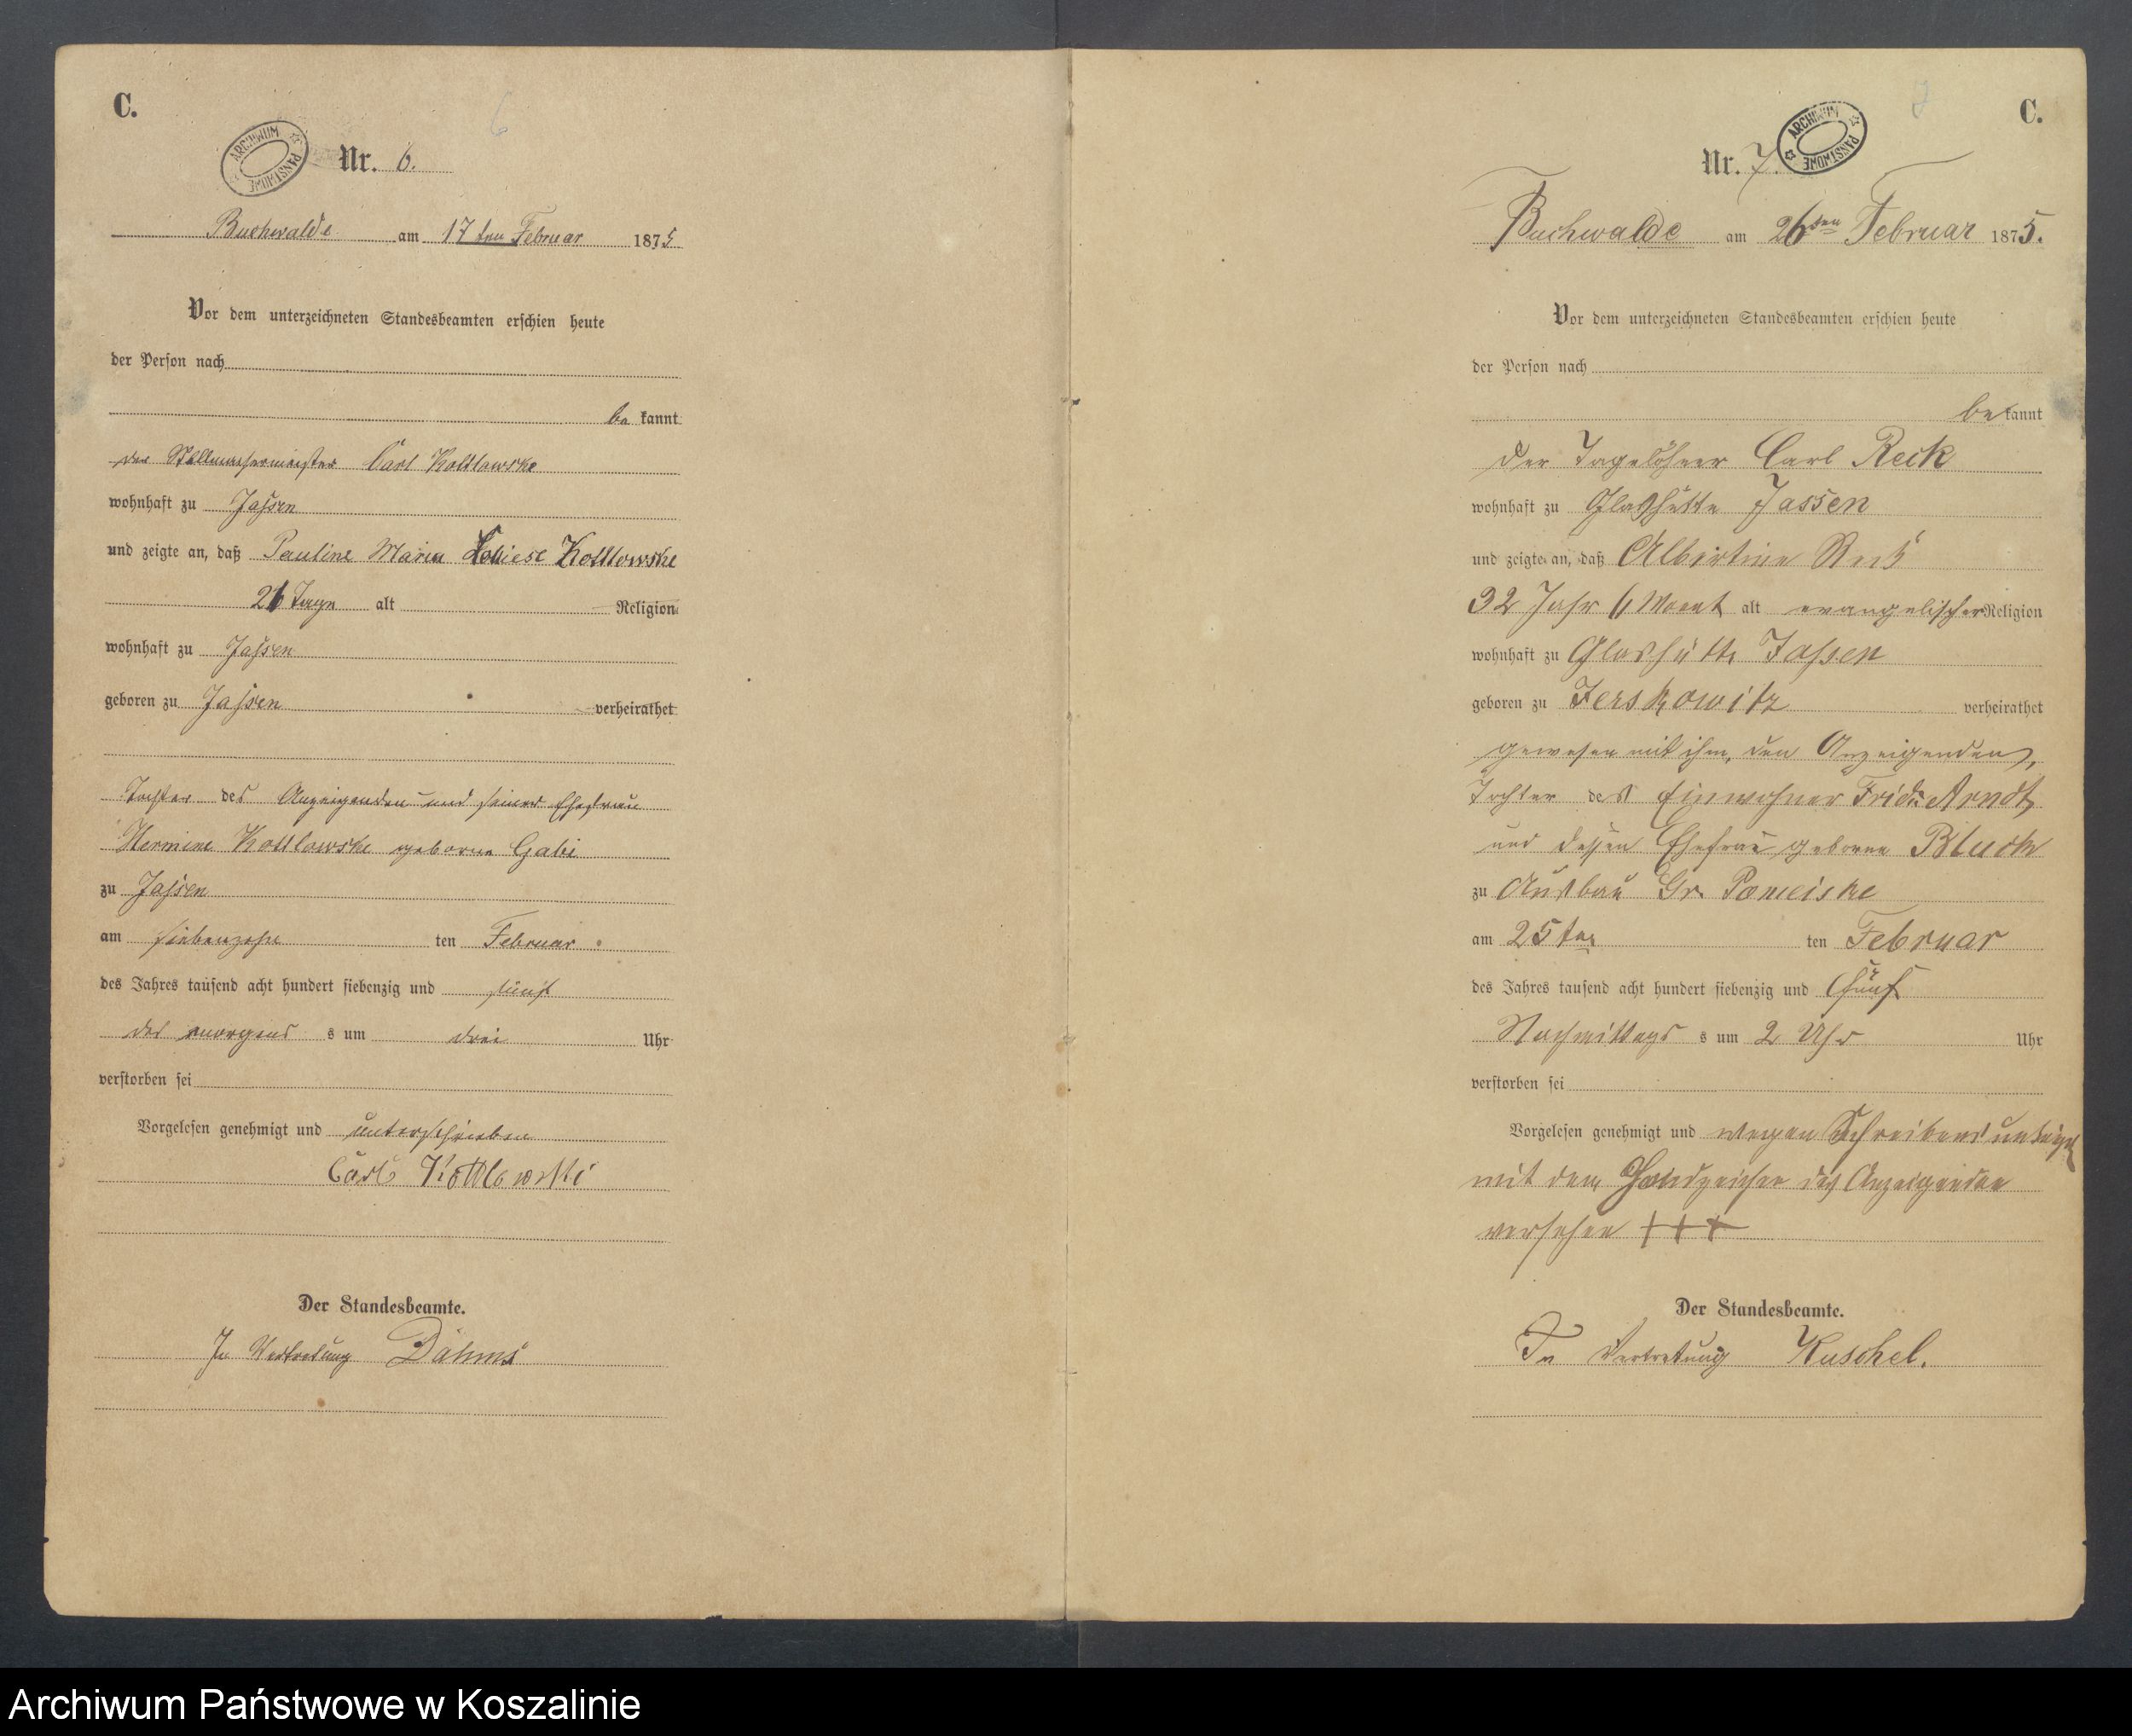 C.
6
ARCHIWUM PAŃSTWOWE
Nr. 6.
Buchwalde am 17ten Februar 1875
Vor dem unterzeichneten Standesbeamten erschien heute
der Person nach
be kannt
der Stellmachermeister Carl Kottlowske
wohnhaft zu Jassen
und zeigte an, daß Pauline Maria Louiese Kottlowske
Tage alt Religion
wohnhaft zu Jassen
geboren zu Jassen verheirathet
Tochter des Anzeigenden und seiner Ehefrau
Hermine Kottlowske geborne Gabi
zu Jassen
am siebenzehn ten Februar
des Jahres tausend acht hundert siebenzig und fünf
des morgens s um drei Uhr
verstorben sei
Vorgelesen genehmigt und unterschrieben
Carl Kottlowski
Der Standesbeamte.
In Vertretung Dahms
C.
7
ARCHIWUM PAŃSTWOWE
Nr. 7.
Buchwalde am 26ten Februar 1875.
Vor dem unterzeichneten Standesbeamten erschien heute
der Person nach
be kannt
der Tagelöhner Carl Reck
wohnhaft zu Glashütte Jassen
und zeigte an, daß Albertine Reck
32 Jahr Monat alt evangelischer Religion
wohnhaft zu Glashütte Jassen
geboren zu Jerskowitz verheirathet
gewesen mit ihm, den Anzeigenden,
Tochter des Einwohner Fridr. Arndt,
und dessen Ehefrau geborne
zu Ausbau Gr. Pomeiske
am 25ten ten Februar
des Jahres tausend acht hundert siebenzig und fünf
Nachmittags s um 2 Uhr Uhr
verstorben sei
Vorgelesen genehmigt und wegen Schreibens
mit dem Handzeichen des Anzeigenden
versehen +++
Der Standesbeamte.
In Vertretung Kuschel.
Archiwum Państwowe w Koszalinie